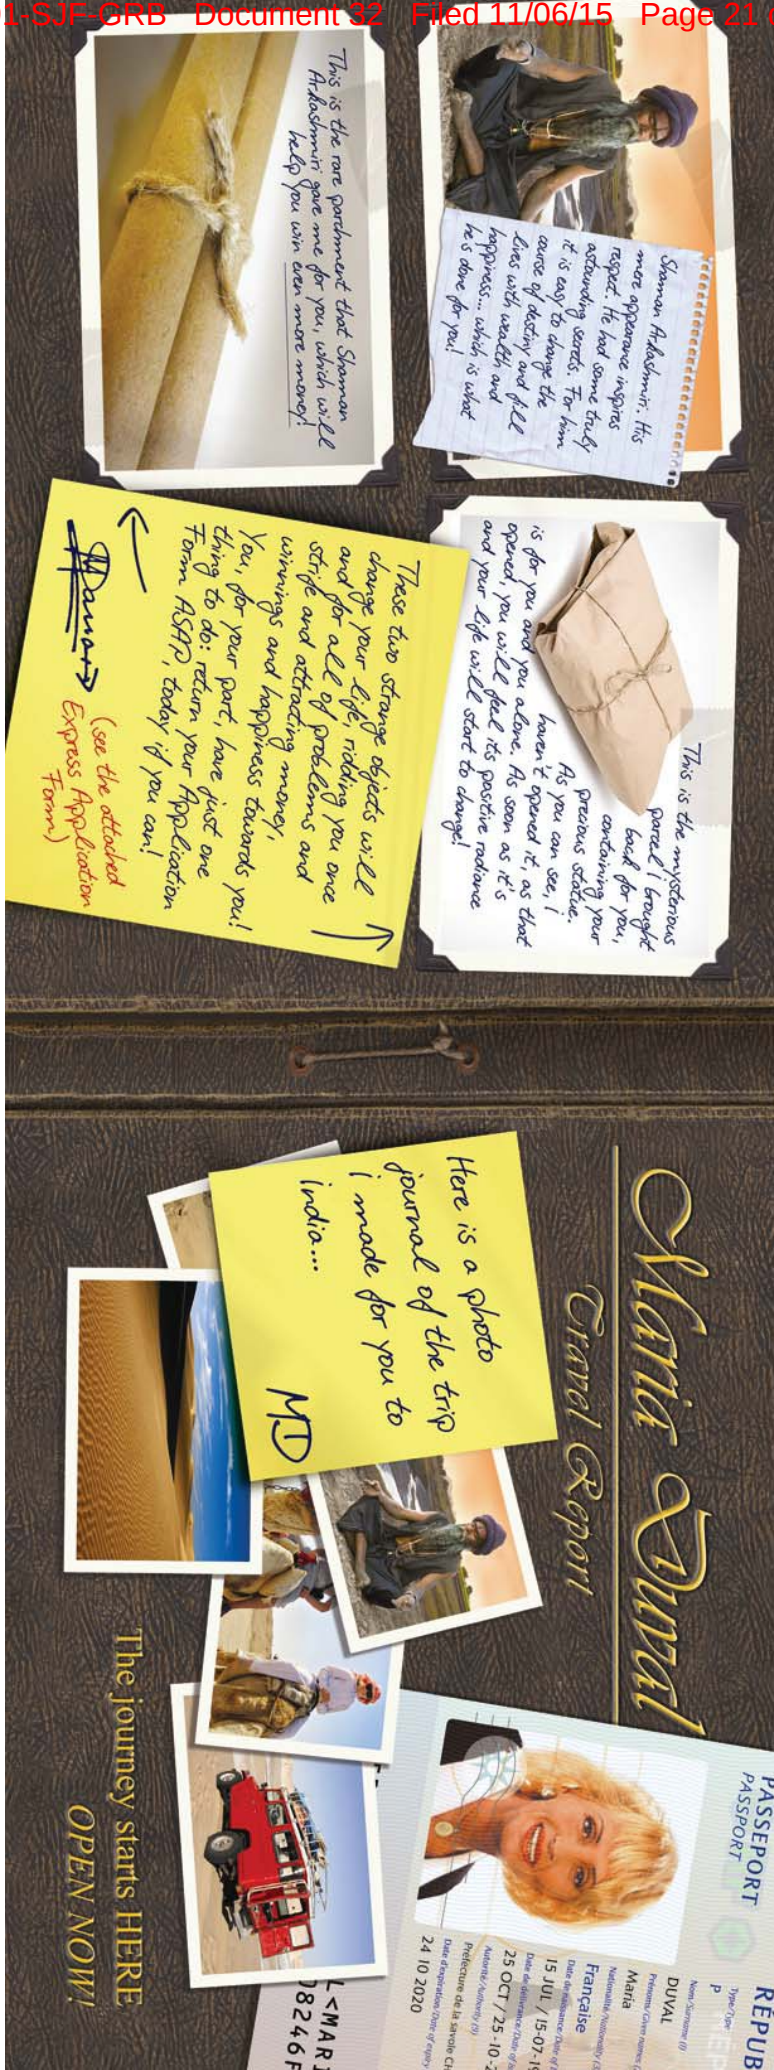 1-SJF-GRB Document 32 Filed 11/06/15 Page 21
Shaman Arkashmiri. His
mere appearance inspires
respect. He had some truly
astounding secrets. For him
it is easy to change the
course of destiny and fill
lives with wealth and
happiness... which is what
he's done for you!
This is the rare parchment that Shaman
Arkashmiri gave me for you, which will
help you win even more money!
This is the mysterious
parcel I brought
back for you,
containing your
precious statue.
As you can see, I
haven't opened it, as that
is for you and you alone. As soon as it's
opened, you will feel its positive radiance
and your life will start to change!
These two strange objects will
change your life, ridding you once
and for all of problems and
strife and attracting money,
winnings and happiness towards you!
You, for your part, have just one
thing to do: return your Application
Form ASAP, today if you can!
(see the attached
Express Application
Form)
Maria Duval
Travel Report
Here is a photo
journal of the trip
i made for you to
india...
MD
PASSEPORT
PASSPORT
RÉPUB
Type/Type
P
Nom/Surname (1)
DUVAL
Prénoms/Given names
Maria
Nationalité/Nationality
Française
Date de naissance/Date of
15 JUL / 15-07-1
Date de délivrance/Date of
25 OCT / 25-10-2
Autorité/Authority (9)
Préfecture de la savoie Ch
Date d'expiration/Date of expiry
24 10 2020
L<MARI
08246F
The journey starts HERE
OPEN NOW!